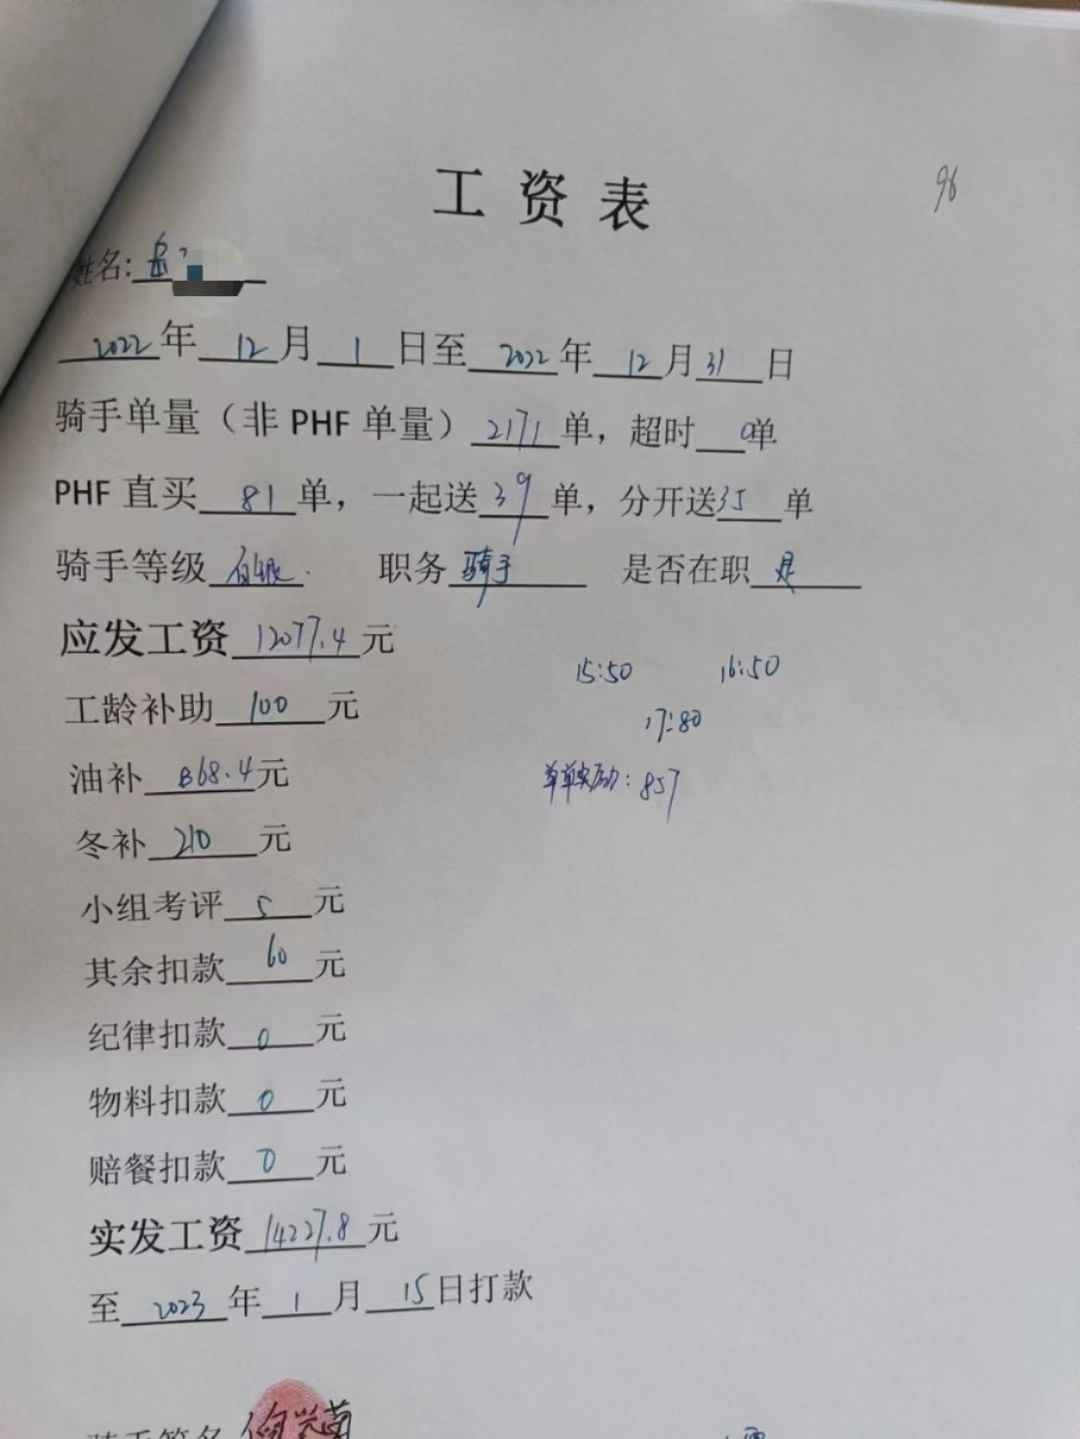 工资表
96
姓名: 岳
2022年12月1日至2022年12月31日
骑手单量（非 PHF 单量）2171单，超时0单
PHF 直买81单，一起送39单，分开送35单
骑手等级白银 职务骑手 是否在职是
应发工资12077.4元
15:50 16:50
工龄补助100元
17:80
油补868.4元
单单奖励: 857
冬补210元
小组考评5元
其余扣款60元
纪律扣款0元
物料扣款0元
赔餐扣款0元
实发工资14227.8元
至2023年1月15日打款
骑手签名